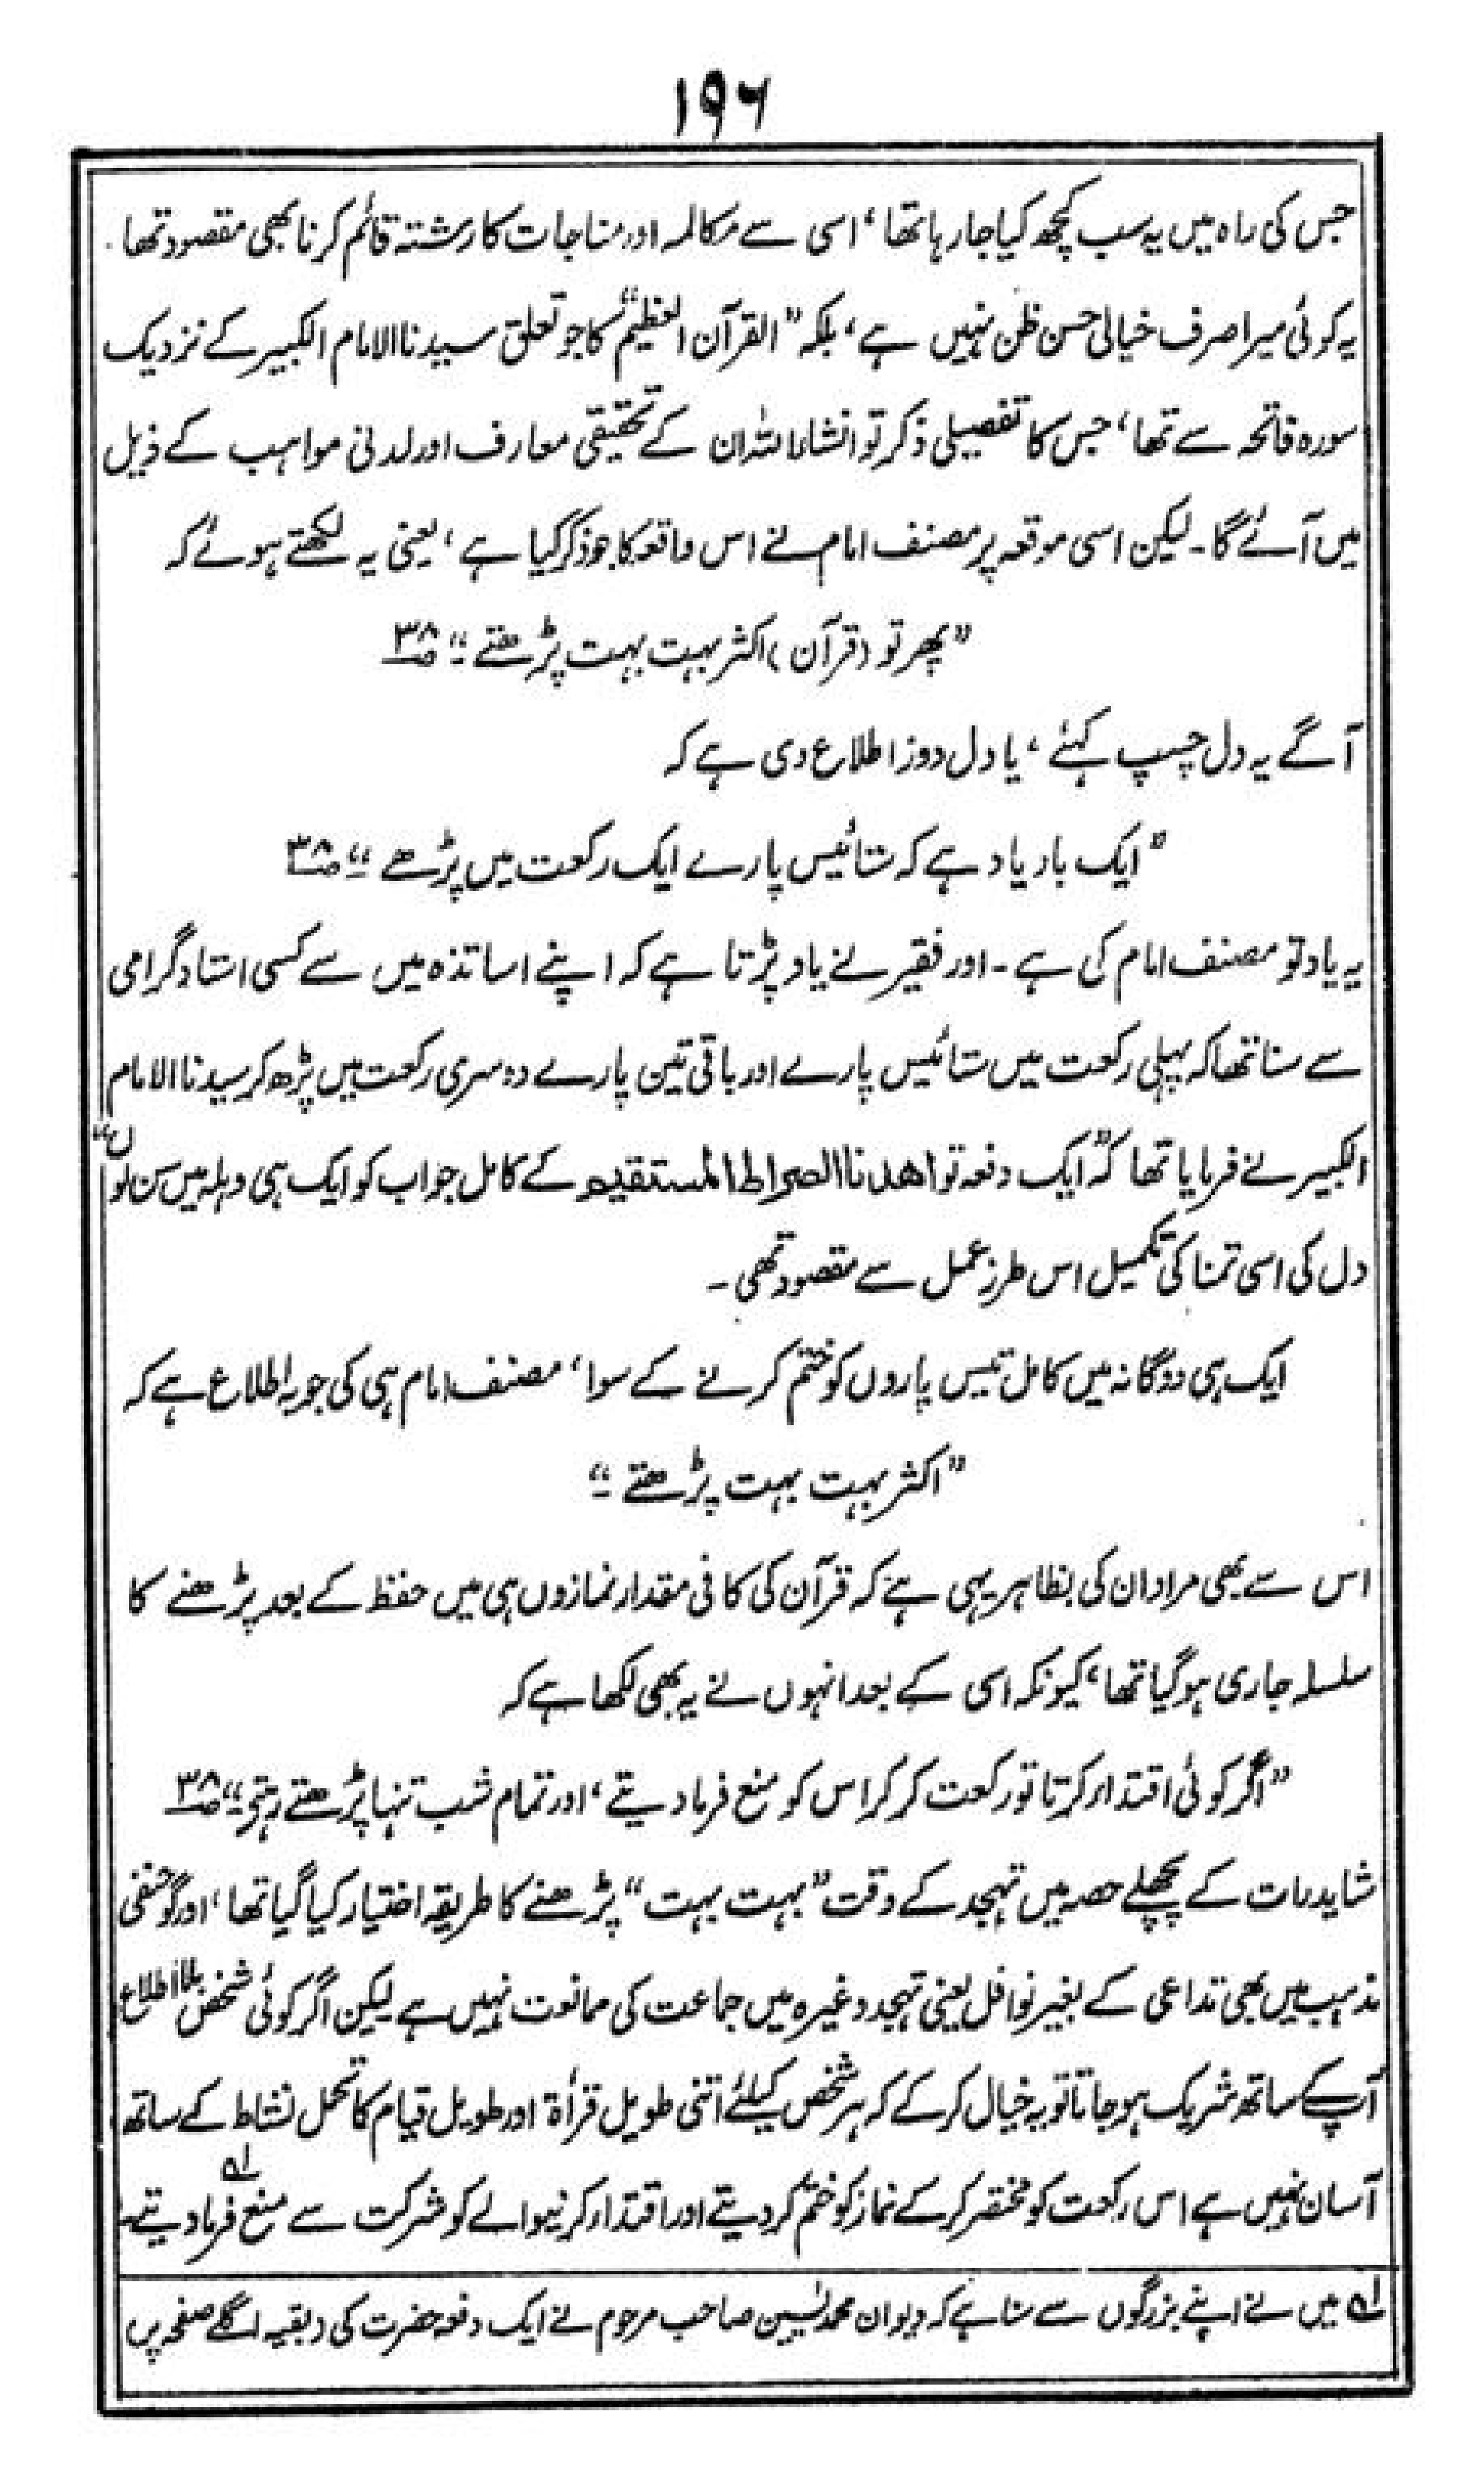 ۱۹۶
جس کی راہ میں یہ سب کچھ کیا جا رہا تھا، اسی سے مکالمہ اور مناجات کا رشتہ قائم کرنا بھی مقصود تھا۔
یہ کوئی میرا صرف خیالی حسن ظن نہیں ہے، بلکہ "القرآن العظیم" کا جو تعلق سیدنا الامام الکبیر کے نزدیک
سورہ فاتحہ سے تھا، جس کا تفصیلی ذکر تو انشاء اللہ ان کے تحقیقی معارف اور لدنی مواہب کے ذیل
میں آئے گا۔ لیکن اسی موقعہ پر مصنف امام نے اس واقعہ کا جو ذکر کیا ہے، یعنی یہ لکھتے ہوئے کہ
"پھر تو (قرآن) اکثر بہت بہت پڑھتے۔" ص۳۸
آگے یہ دل چسپ کہئے، یا دل دوز اطلاع دی ہے کہ
"ایک بار یاد ہے کہ ستائیس پارے ایک رکعت میں پڑھے۔" ص۳۸
یہ یاد تو مصنف امام کی ہے۔ اور فقیر نے یاد پڑتا ہے کہ اپنے اساتذہ میں سے کسی استاد گرامی
سے سنا تھا کہ پہلی رکعت میں ستائیس پارے اور باقی تین پارے دوسری رکعت میں پڑھ کر سیدنا الامام
الکبیر نے فرمایا تھا کہ "ایک دفعہ تو اھدنا الصراط المستقیم کے کامل جواب کو ایک ہی وہلہ میں سن لوں"
دل کی اسی تمنا کی تکمیل اس طرز عمل سے مقصود تھی۔
ایک ہی دوگانہ میں کامل تیس پاروں کو ختم کرنے کے سوا، مصنف امام ہی کی جو یہ اطلاع ہے کہ
"اکثر بہت بہت پڑھتے۔"
اس سے بھی مراد ان کی بظاہر یہی ہے کہ قرآن کی کافی مقدار نمازوں ہی میں حفظ کے بعد پڑھنے کا
سلسلہ جاری ہو گیا تھا، کیونکہ اسی کے بعد انہوں نے یہ بھی لکھا ہے کہ
"اگر کوئی اقتدار کرتا تو رکعت کر کر اس کو منع فرما دیتے، اور تمام شب تنہا پڑھتے رہتے۔" ص۳۸
شاید رات کے پچھلے حصہ میں تہجد کے وقت "بہت بہت" پڑھنے کا طریقہ اختیار کیا گیا تھا، اور گو حنفی
مذہب میں بھی تداعی کے بغیر نوافل یعنی تہجد وغیرہ میں جماعت کی ممانعت نہیں ہے لیکن اگر کوئی شخص بلا اطلاع
آپ کے ساتھ شریک ہو جاتا تو یہ خیال کر کے کہ ہر شخص کیلئے اتنی طویل قرأۃ اور طویل قیام کا تحمل نشاط کے ساتھ
آسان نہیں ہے اس رکعت کو مختصر کر کے نماز کو ختم کر دیتے اور اقتدار کرنیوالے کو شرکت سے منع فرما دیتے۔ ؎۱
؎۱ میں نے اپنے بزرگوں سے سنا ہے کہ دیوان محمد یٰسین صاحب مرحوم نے ایک دفعہ حضرت کی (بقیہ اگلے صفحہ پر